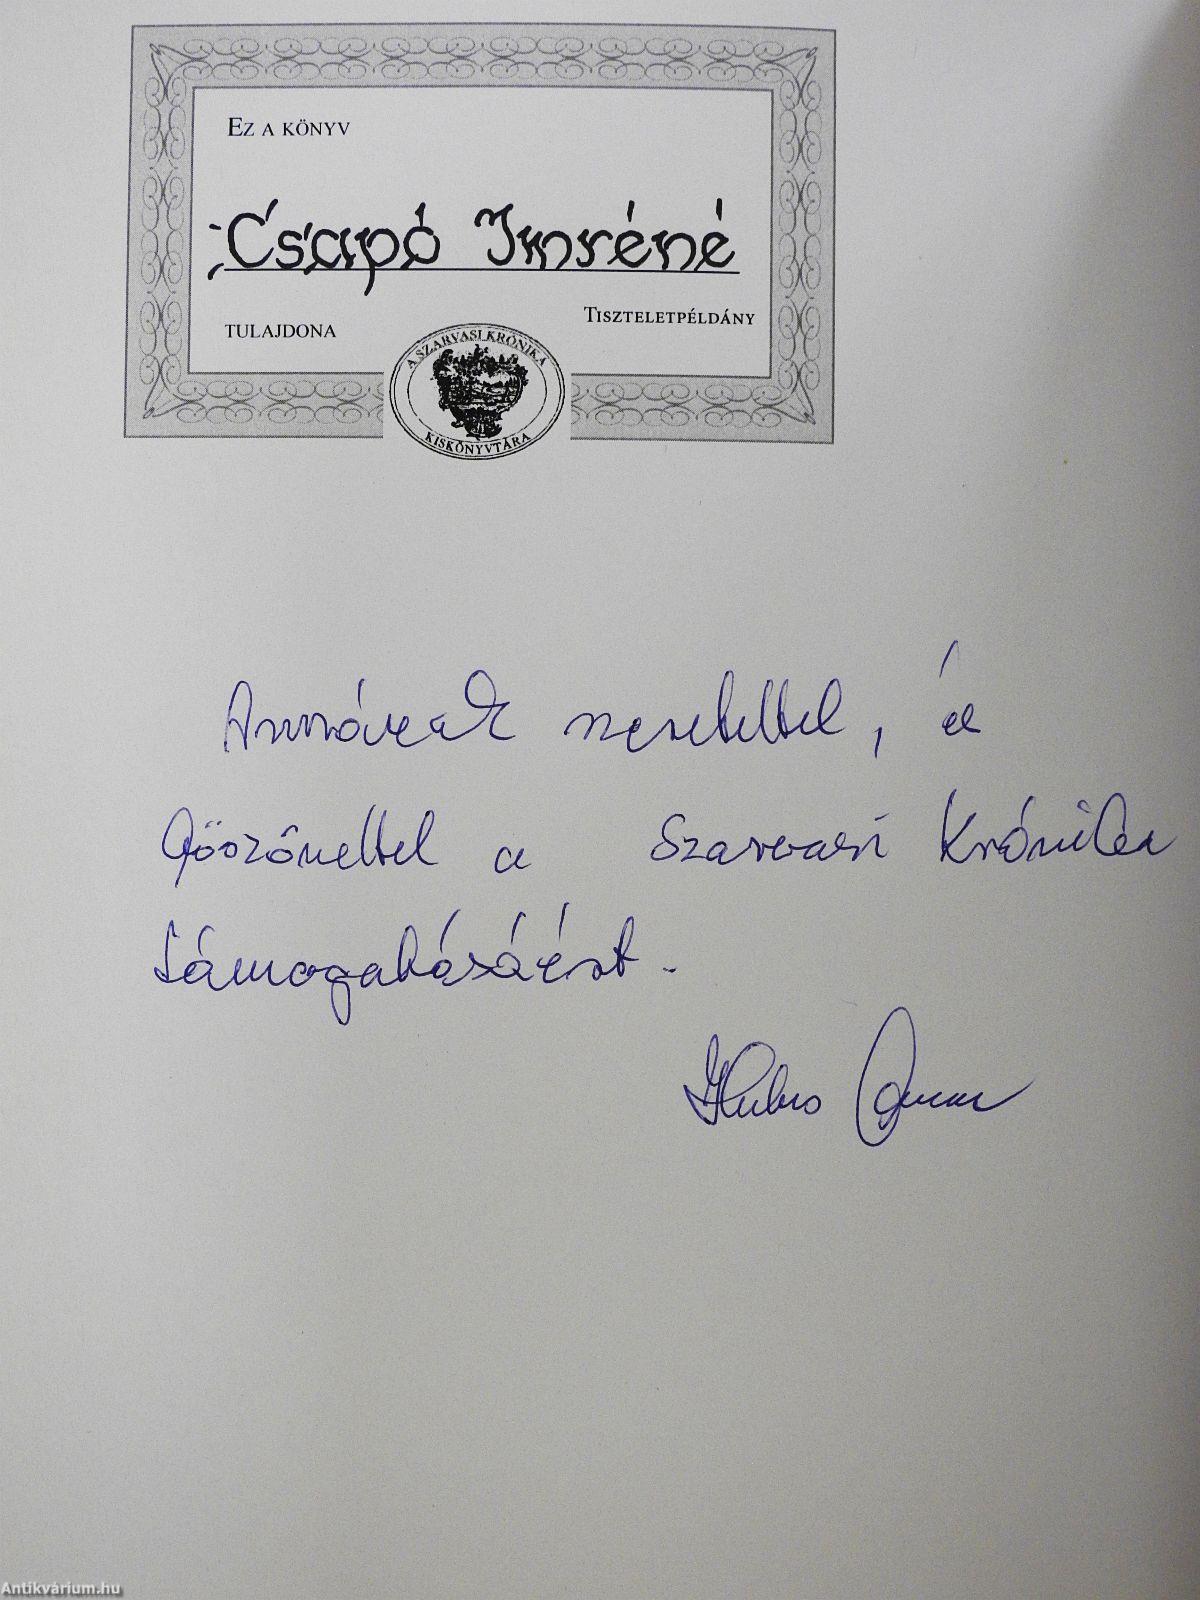 EZ A KÖNYV
Csapó Imréné
TISZTELETPÉLDÁNY
TULAJDONA
A SZARVASI KRÓNIKA
KISKÖNYVTÁRA
Annának szeretettel, és
köszönettel a Szarvasi Krónika
támogatásáért.
Antikvárium.hu